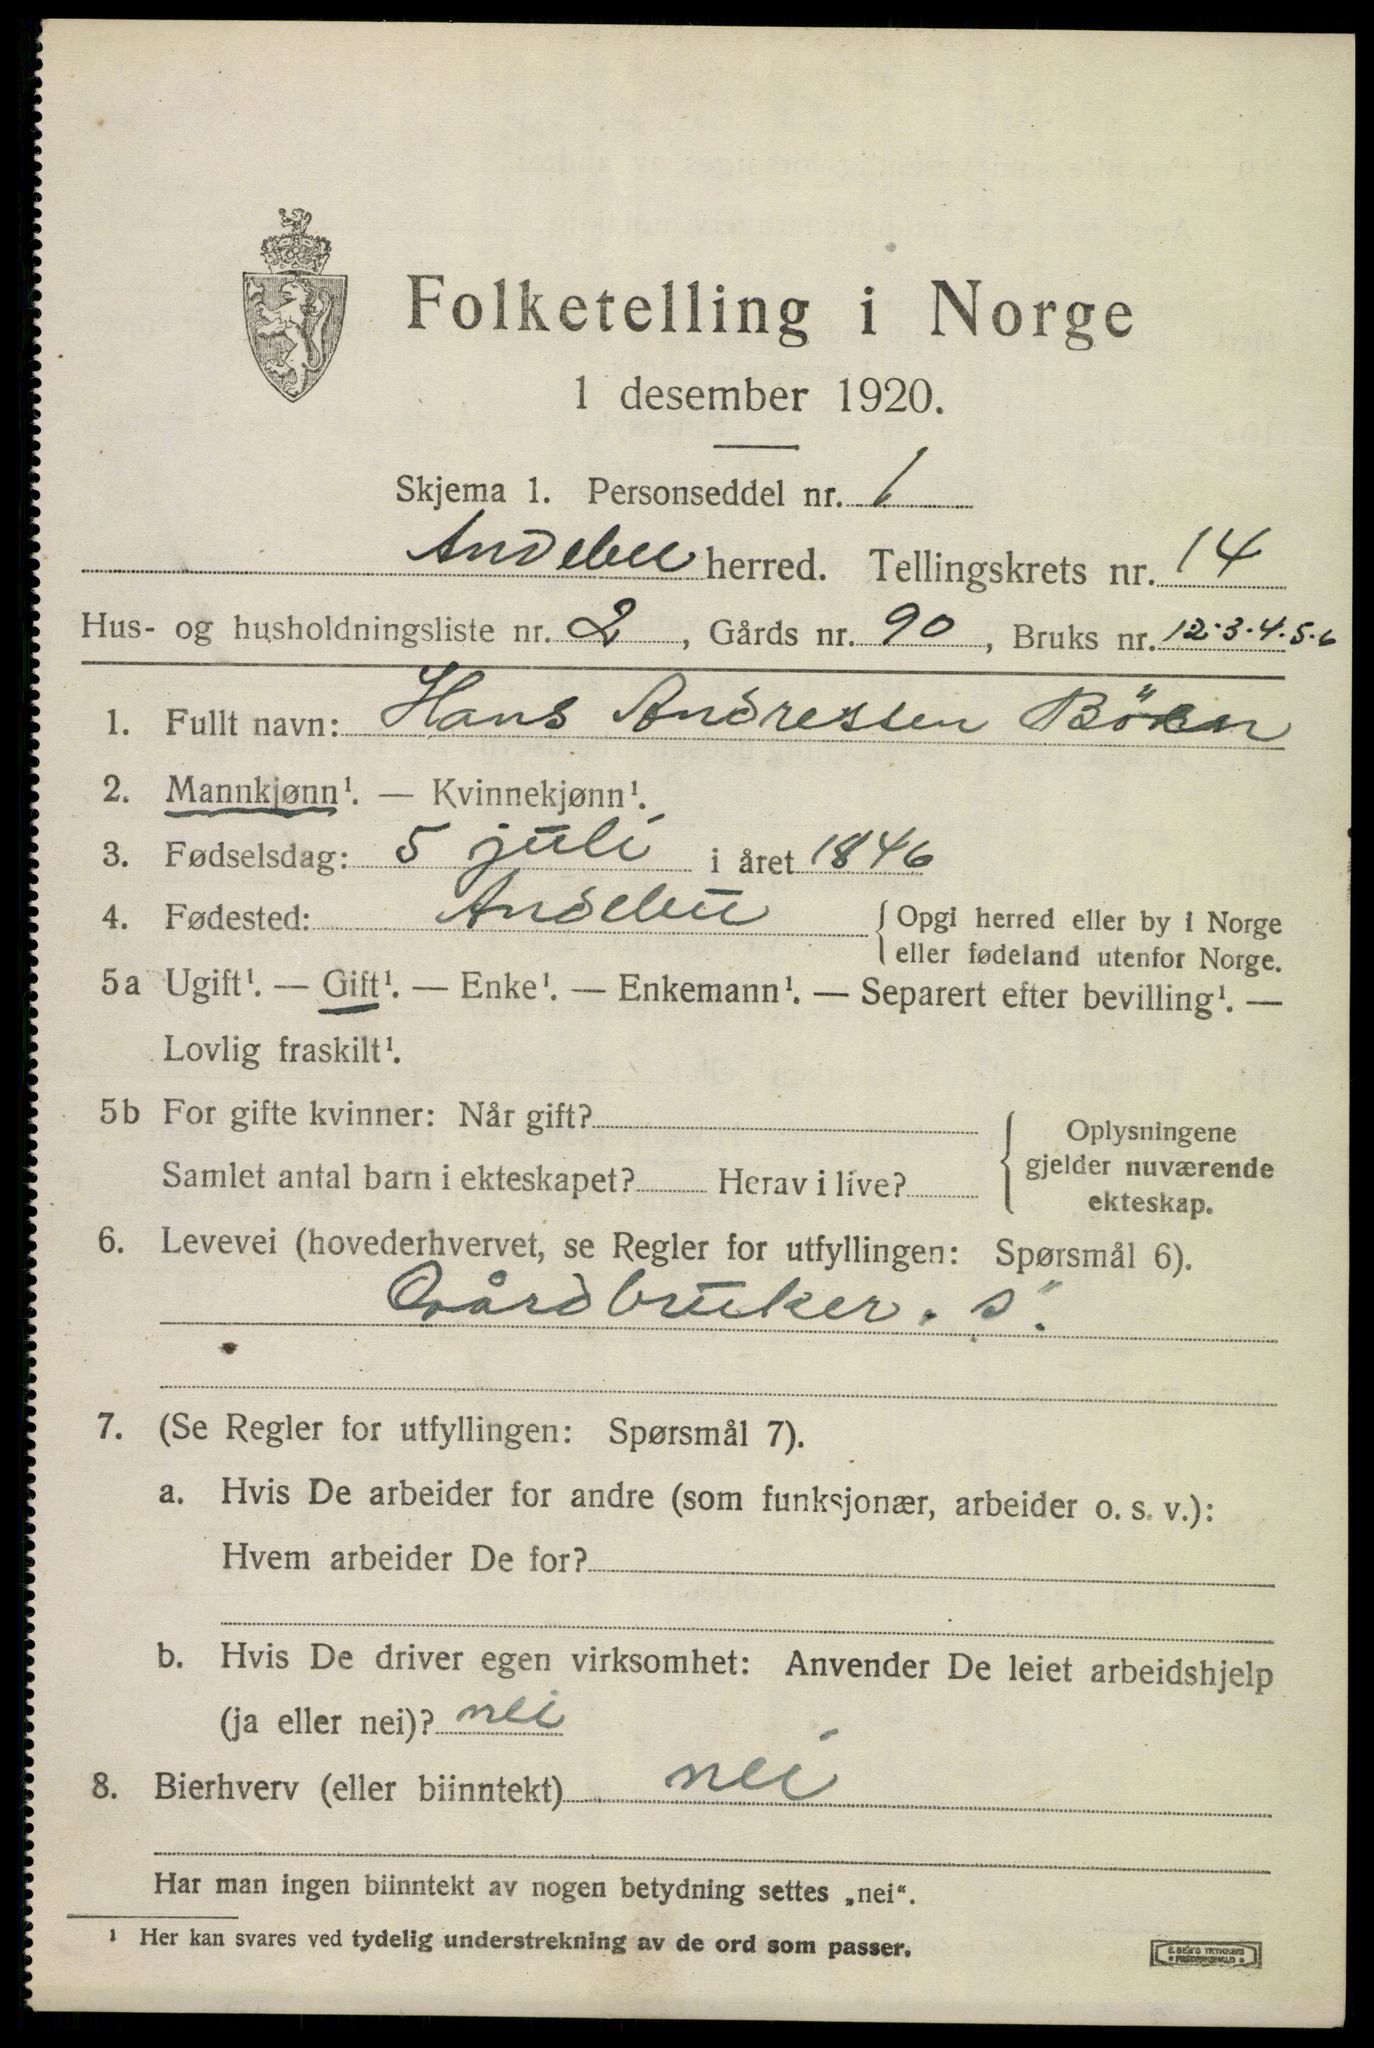 Folketelling i Norge
1 desember 1920.
Skjema 1. Personseddel nr. 1
Andebu herred. Tellingskrets nr. 14
Hus- og husholdningsliste nr. 2, Gårds nr. 90, Bruks nr. 12.3.4.5.6
1. Fullt navn: Hans Andressen
2. Mannkjønn¹. — Kvinnekjønn¹.
3. Fødselsdag: 5 juli i året 1846
4. Fødested: Andebu { Opgi herred eller by i Norge
eller fødeland utenfor Norge.
5a Ugift¹. — Gift¹. — Enke¹. — Enkemann¹. — Separert efter bevilling¹. —
Lovlig fraskilt¹.
5b For gifte kvinner: Når gift? { Oplysningene
Samlet antal barn i ekteskapet? Herav i live? gjelder nuværende
ekteskap.
6. Levevei (hovederhvervet, se Regler for utfyllingen: Spørsmål 6).
Gårdbruker. s.
7. (Se Regler for utfyllingen: Spørsmål 7).
a. Hvis De arbeider for andre (som funksjonær, arbeider o. s. v.):
Hvem arbeider De for?
b. Hvis De driver egen virksomhet: Anvender De leiet arbeidshjelp
(ja eller nei)? nei
8. Bierhverv (eller biinntekt) nei
Har man ingen biinntekt av nogen betydning settes „nei“.
¹ Her kan svares ved tydelig understrekning av de ord som passer.